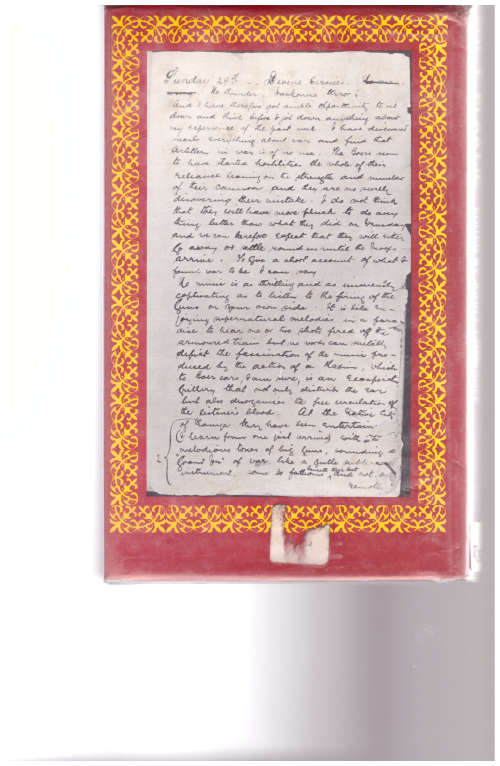 Sunday 29th — Divine Services.
No thunder.
and I have therefore got ample opportunity to sit
down and think before I jot down anything about
my experience of the past week. I have discovered
nearly everything about war and find that
artillery in war is of no use. The Boers seem
to have started hostilities the whole of their
reliance leaning on the strength and number
of their cannons and they are now surely
discovering their mistake. I do not think
that they will have more pluck to do any
thing better than what they did on Wednesday
and we can therefore expect that they will either
go away or settle round us until the troops
arrive. To give a short account of what I
found war to be I can say
No music is as thrilling and as immensely
captivating as to listen to the firing of the
guns on your own side. It is like en-
joying supernatural melodies in a para-
dise to hear one or two shots fired off the
armoured train but no words can suitably
depict the fascination of the music pro-
duced by the action of a Maxim, which
to Boer ears, I am sure, is an
that not only disturb the ear
but also disorganises the free circulation of
the listener's blood. At the
of Kanya they have been entertain
I learn from one just arrived with the
melodious tones of big guns, sounding
of war, like a gentle
instrument, some fathoms and not
remote